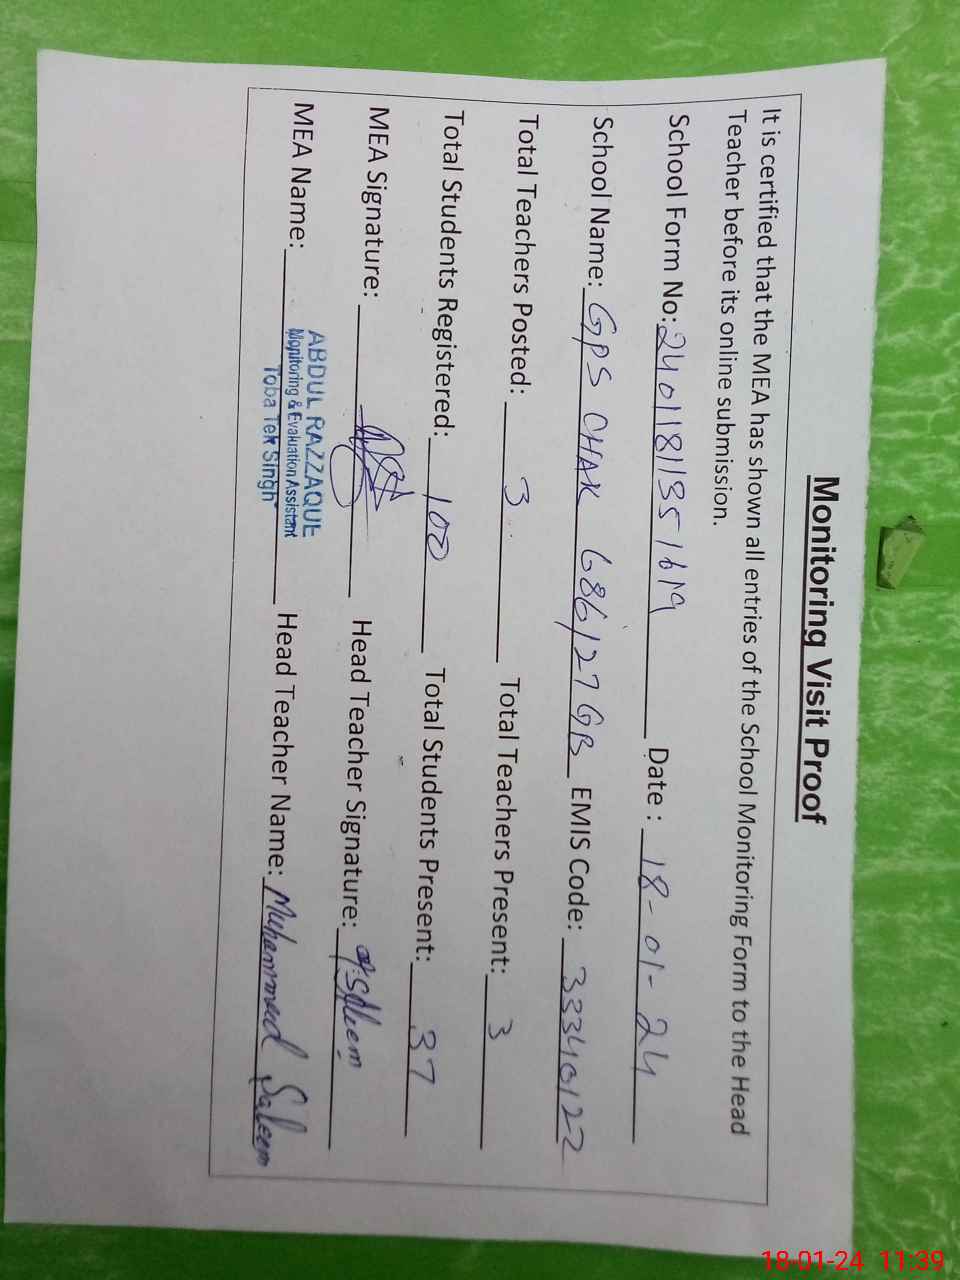 Monitoring Visit Proof
It is certified that the MEA has shown all entries of the School Monitoring Form to the Head
Teacher before its online submission.
School Form No: 24011811351619 Date : 18-01-24
School Name: GPS CHAK 686/27 GB EMIS Code: 33340122
Total Teachers Posted: 3 Total Teachers Present: 3
Total Students Registered: 100 Total Students Present: 37
MEA Signature: Head Teacher Signature: M.Saleem
MEA Name: ABDUL RAZZAQUE Head Teacher Name: Muhammad Saleem
Monitoring & Evaluation Assistant
Toba Tek Singh
18-01-24 11:39